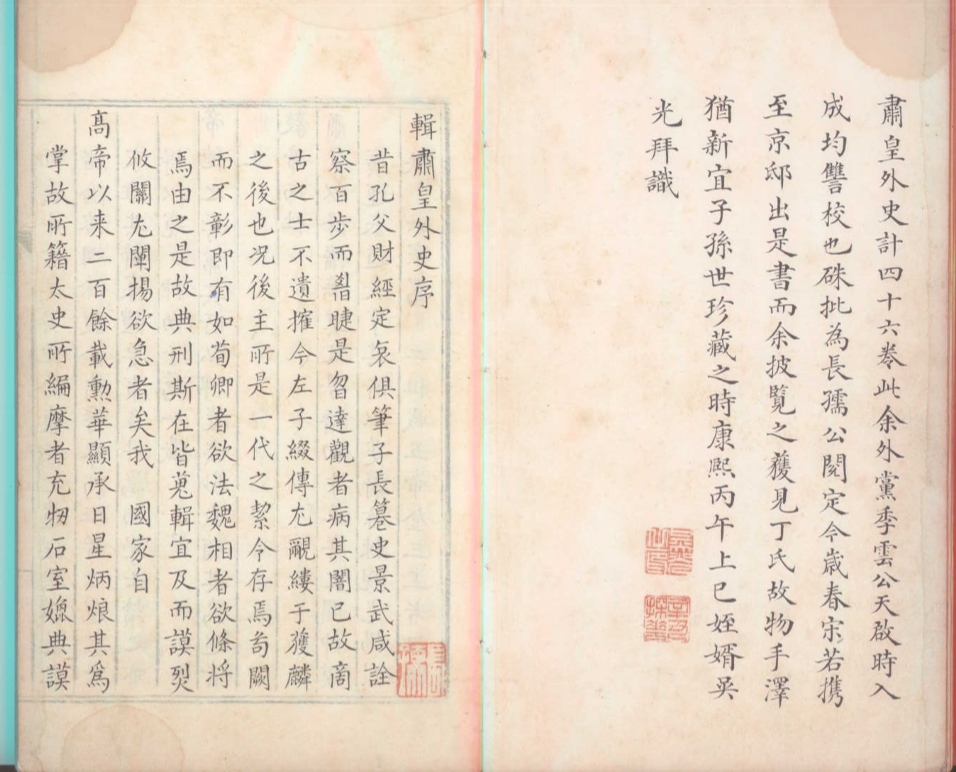 肅皇外史計四十六卷此余外黨季雲公天啟時入
成均讐校也硃批為長孺公閱定今歲春宗若携
至京邸出是書而余披覽之蒦見丁氏故物手澤
猶新宜子孫世珍藏之時康熙丙午上巳姪婿吴
光拜識
輯肅皇外史序
昔孔父財經定哀俱筆子長篹史景武咸詮
察百步而睝是曶達觀者病其闇已故啇
古之士不遺摧今左子綴傳尤覼縷于獲麟
之後也况後主所是一代之絜令存焉茍闕
而不彰即有如荀卿者欲法魏相者欲條將
焉由之是故典刑斯在皆蒐輯宜及而謨烈
攸關尤闡揚欲急者矣我 國家自
高帝以来二百餘載勲華顯承日星炳烺其為
掌故所籍太史所編摩者充牣石室媺典謨